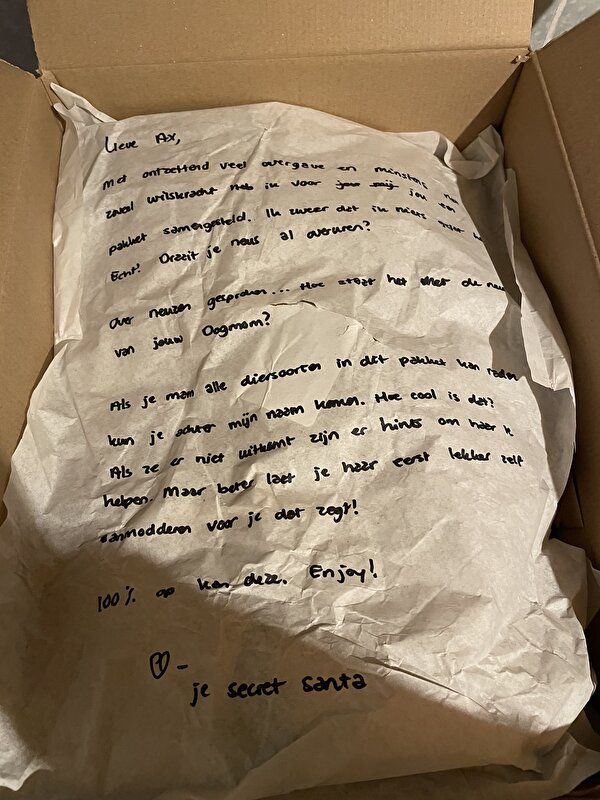 Lieve Ax,
Met ontzettend veel overgave en minstens
zoveel wilskracht heb ik voor jou een
pakket samengesteld. Ik zweer dat ik niets
Echt! Draait je neus al overuren?
Over neuzen gesproken... Hoe staat het met de neus
van jouw Oogmom?
Als je mam alle diersoorten in dit pakket kan raden
kun je achter mijn naam komen. Hoe cool is dat?
Als ze er niet uitkomt zijn er hints om haar te
helpen. Maar beter laat je haar eerst lekker zelf
aanmodderen voor je dat zegt!
100% op kan deze. Enjoy!
♡ -
je secret santa